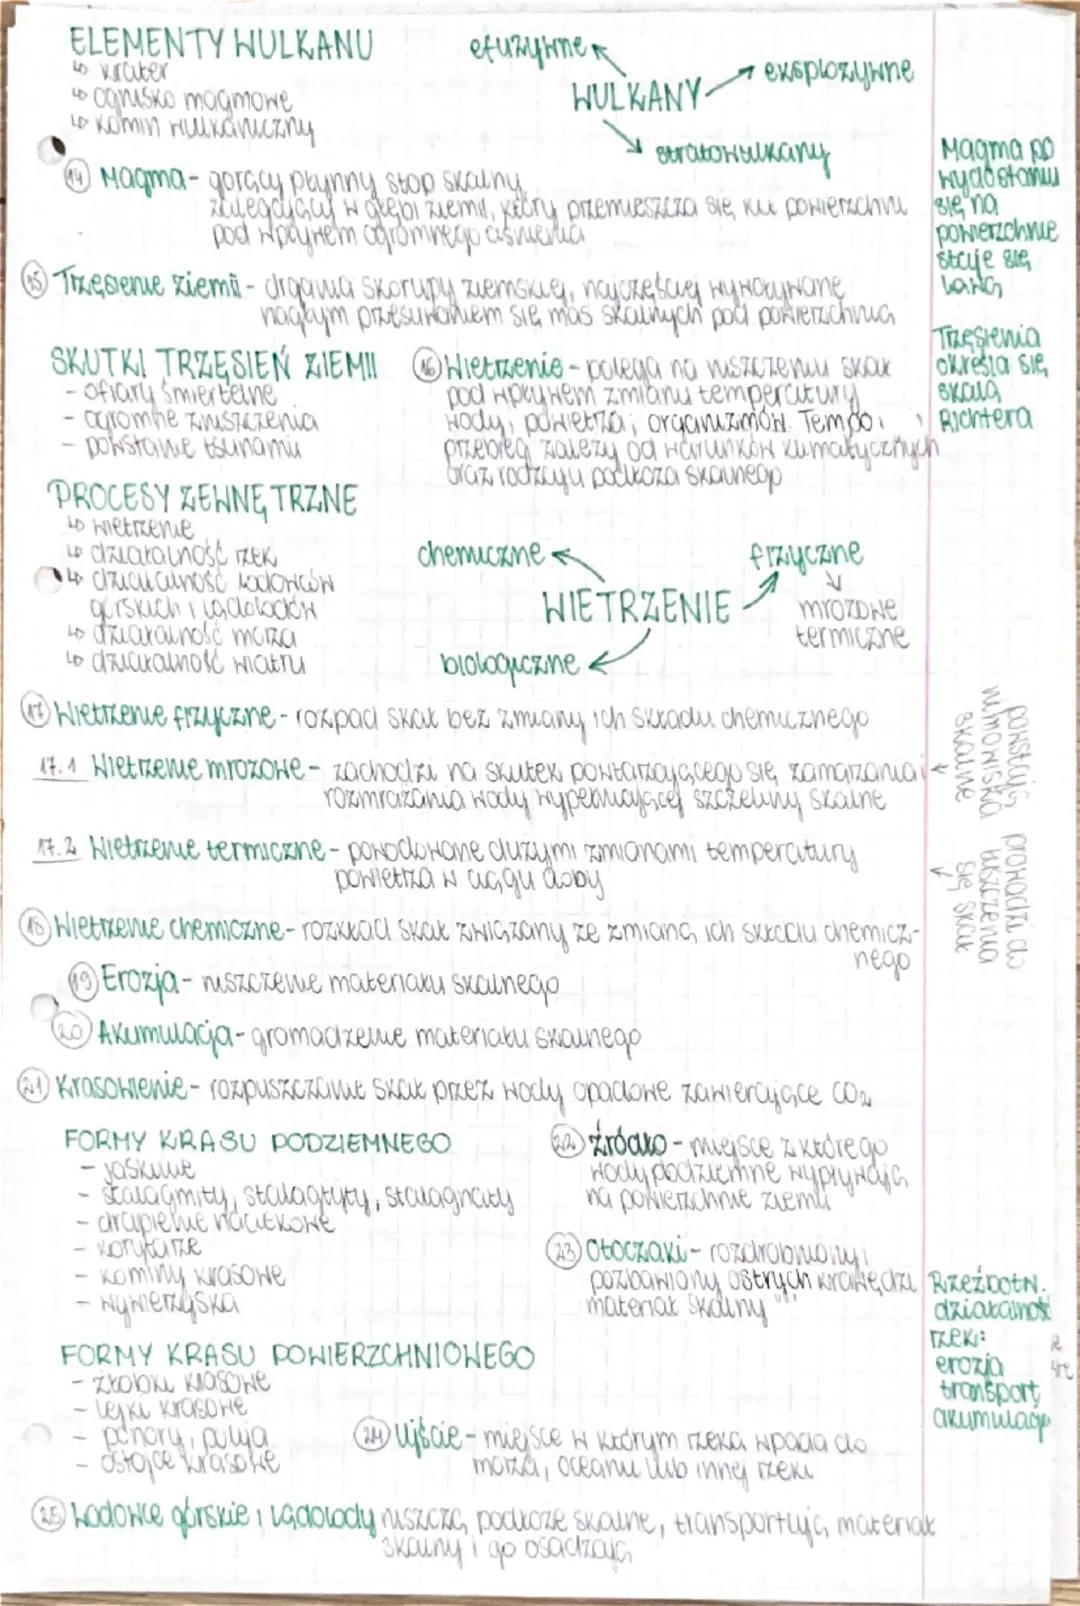 ELEMENTY WULKANU
↳ krater
↳ ognisko magmowe
↳ komin wulkaniczny
efuzywne
WULKANY
eksplozywne
stratowulkany
14 Magma - gorący płynny stop skalny
zalegający w głębi ziemi, który przemieszcza się ku powierzchni
pod wpływem ogromnego ciśnienia
Magma po
wydostaniu
się na
powierzchnie
staje się
lawą
15 Trzęsienie ziemi - drgania skorupy ziemskiej, najczęściej wywoływane
nagłym przesuwaniem się mas skalnych pod powierzchnią
Trzęsienia
określa się
skalą
Richtera
SKUTKI TRZĘSIEŃ ZIEMI
- ofiary śmiertelne
- ogromne zniszczenia
- powstanie tsunami
16 Wietrzenie - polega na niszczeniu skał
pod wpływem zmianu temperatury
wody, powietrza i organizmów. Tempo i
przebieg zależy od warunków klimatycznych
oraz rodzaju podłoża skalnego
PROCESY ZEWNĘTRZNE
↳ wietrzenie
↳ działalność rzek
↳ działalność lodowców
górskich i lądolodów
↳ działalność morza
↳ działalność wiatru
chemiczne
fizyczne
WIETRZENIE
mrozowe
termiczne
biologiczne
17 Wietrzenie fizyczne - rozpad skał bez zmiany ich składu chemicznego
17.1 Wietrzenie mrozowe - zachodzi na skutek powtarzającego się zamarzania i
rozmrażania wody wypełniającej szczeliny skalne
powstają
rumowiska
skalne
17.2 Wietrzenie termiczne - powodowane dużymi zmianami temperatury
powietrza w ciągu doby
prowadzi do
łuszczenia
się skał
18 Wietrzenie chemiczne - rozkład skał związany ze zmianą ich składu chemicz-
nego
19 Erozja - niszczenie materiału skalnego
20 Akumulacja - gromadzenie materiału skalnego
21 Krasowienie - rozpuszczanie skał przez wody opadowe zawierające CO₂
FORMY KRASU PODZIEMNEGO
- jaskinie
- stalagmity, stalaktyty, stalagnaty
- draperie naciekowe
- korytarze
- kominy krasowe
- wywierzyska
22 Źródło - miejsce z którego
wody podziemne wypływają
na powierzchnie ziemi
23 Otoczaki - rozdrobniony i
pozbawiony ostrych krawędzi
materiał skalny
Rzeźbotw.
działalność
rzeki:
erozja
transport
akumulacja
FORMY KRASU POWIERZCHNIOWEGO
- żłobki krasowe
- lejki krasowe
- ponory, polja
- ostańce krasowe
24 Ujście - miejsce w którym rzeka wpada do
morza, oceanu lub innej rzeki
25 Lodowce górskie i lądolody niszczą podłoże skalne, transportują materiał
skalny i go osadzają